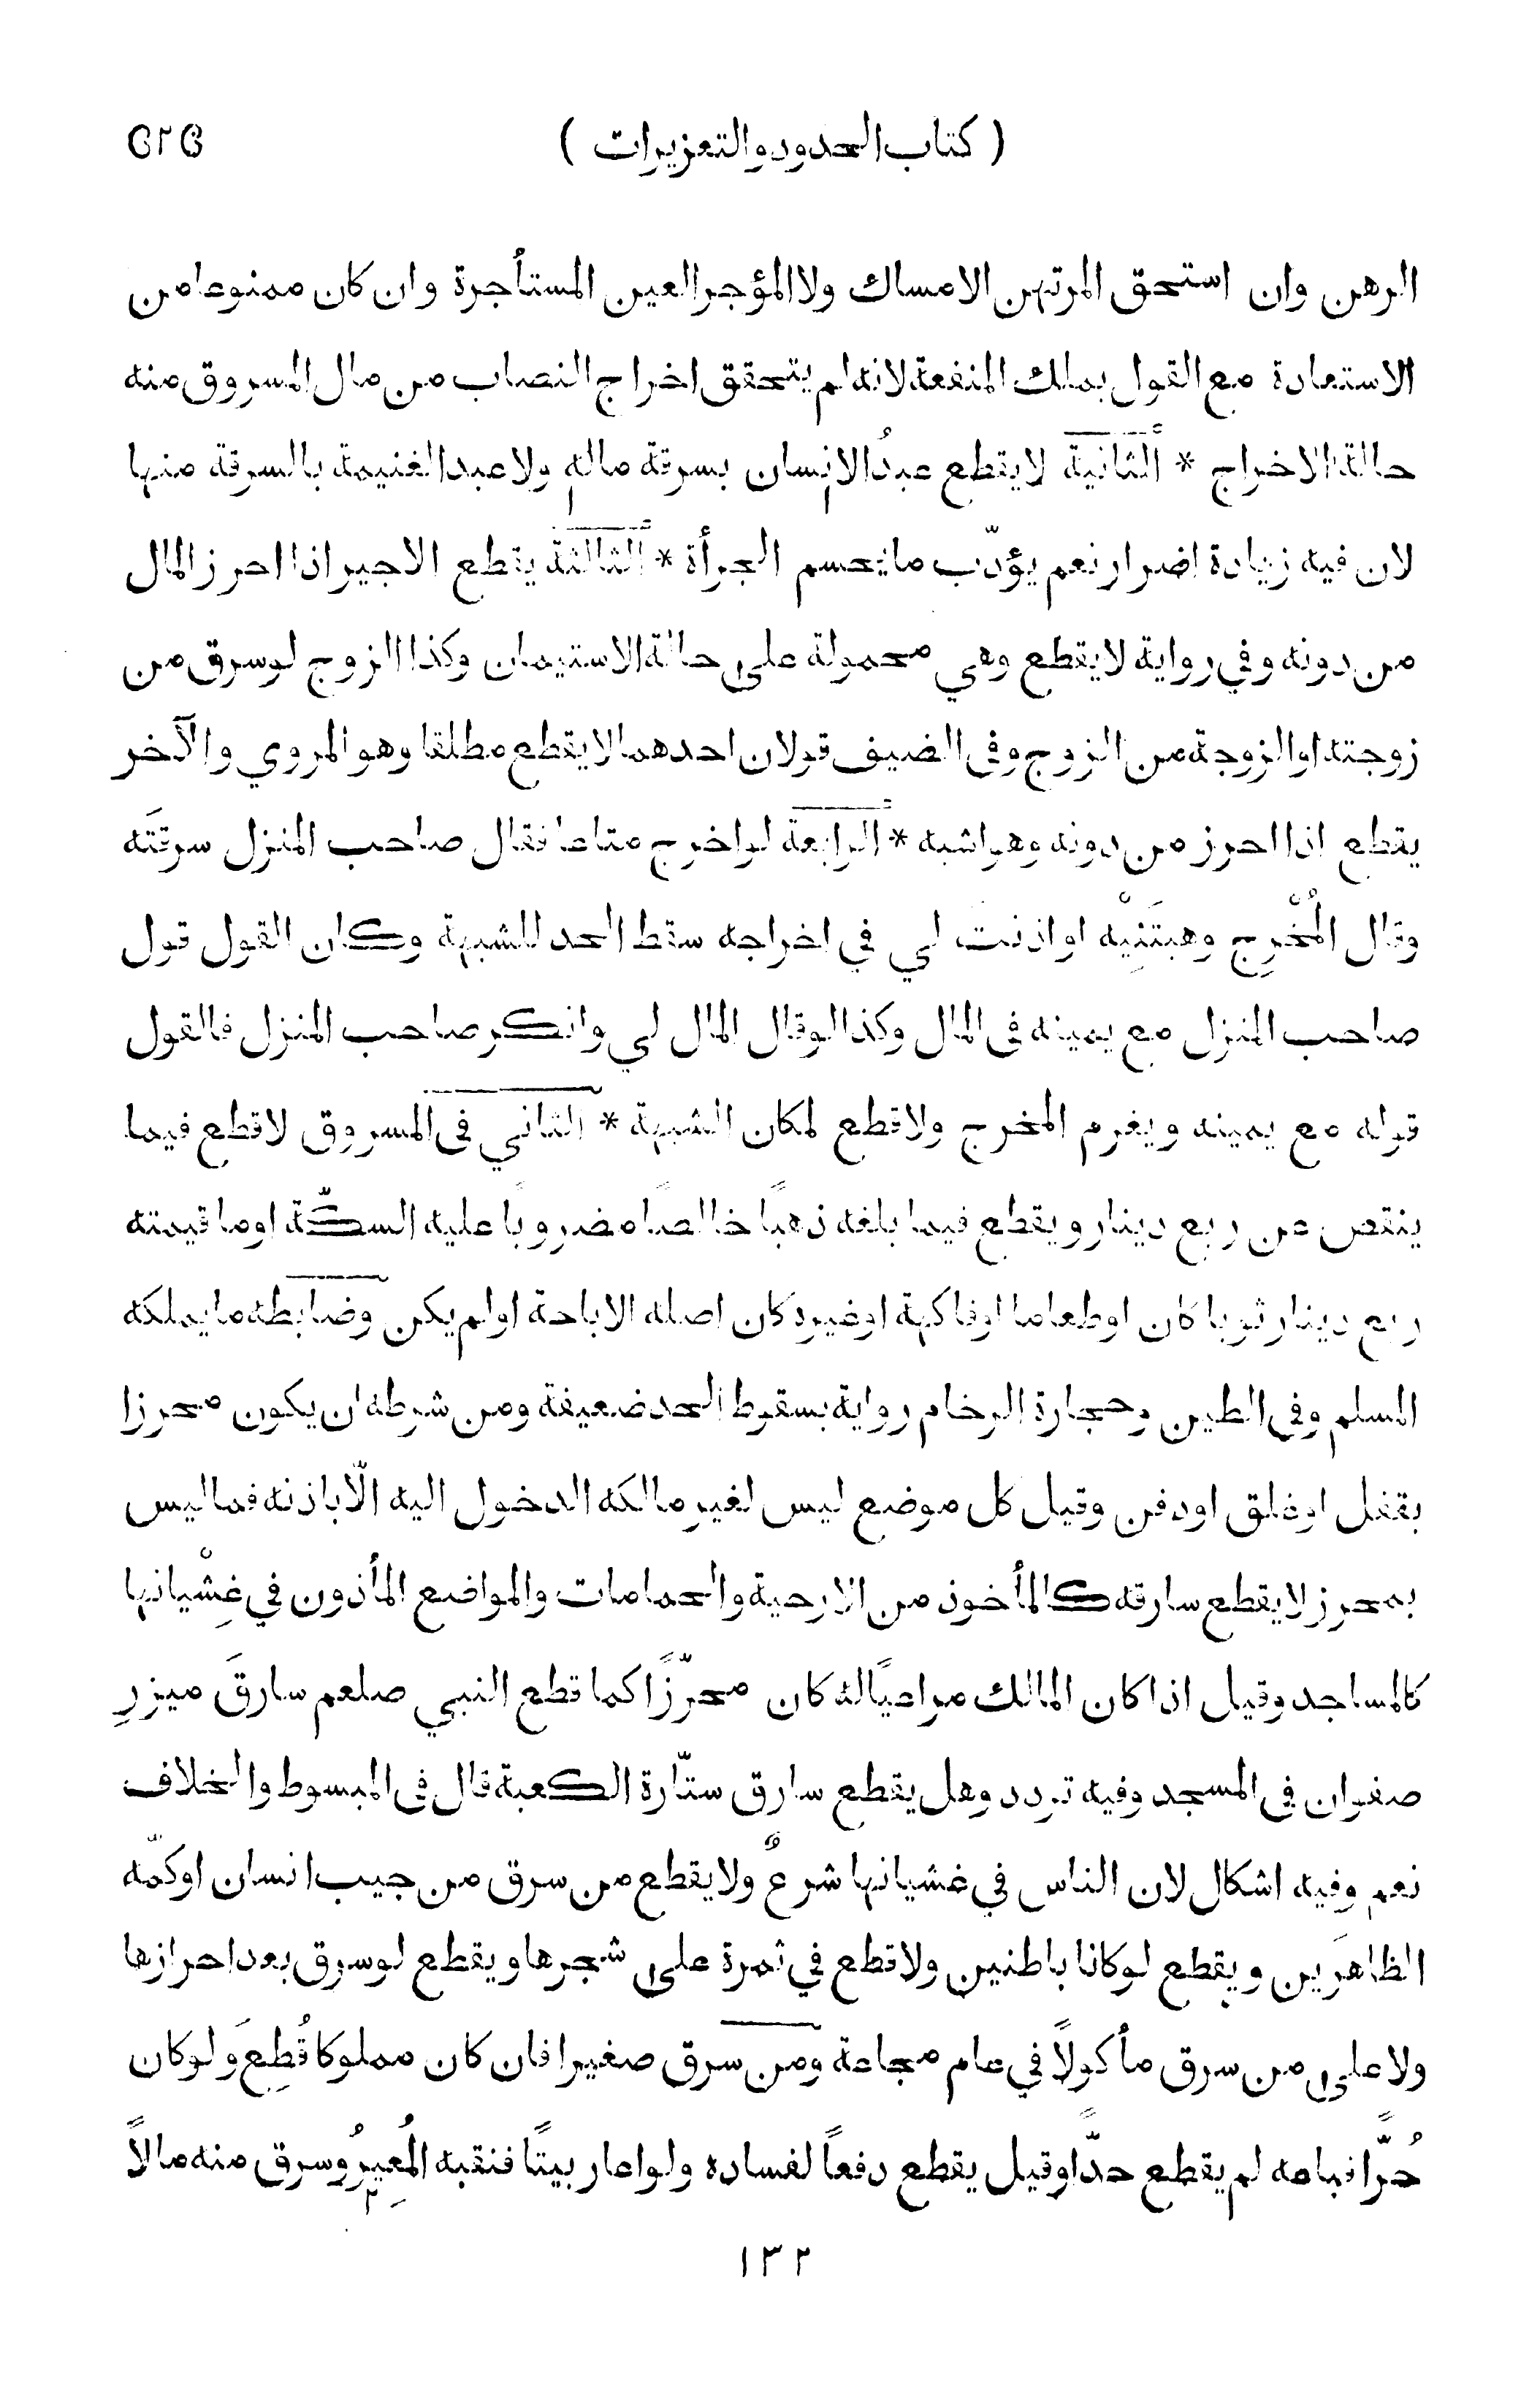 ( كتاب الحدود والتعزيرات ) ٥٢٥
الرهن وان استحق المرتهن الامساك ولا المؤجر العين المستأجرة وان كان ممنوعا من
الاستعادة مع القول بملك المنفعة لانه لم يتحقق اخراج النصاب من مال المسروق منه
حالة الاخراج * الثانية لا يقطع عبدُ الانسان بسرقة ماله ولا عبد الغنيمة بالسرقة منها
لان فيه زيادة اضرار نعم يؤدّب ما يحسم الجرأة * الثالثة يقطع الاجير اذا احرز المال
من دونه وفي رواية لا يقطع وهي محمولة على حالة الاستيمان وكذا الزوج لو سرق من
زوجته او الزوجة من الزوج وفي الضيف قولان احدهما لا يقطع مطلقا وهو المروي والآخر
يقطع اذا احرز من دونه وهو اشبه * الرابعة لو اخرج متاعا فقال صاحب المنزل سرقتَه
وقال المُخْرِج وهبتَنِيْه او اذنتَ لي في اخراجه سقط الحد للشبهة وكان القول قول
صاحب المنزل مع يمينه في المال وكذا لو قال المال لي وانكر صاحب المنزل فالقول
قوله مع يمينه ويغرم المخرج ولا قطع لمكان الشبهة * الثاني في المسروق لا قطع فيما
ينقص عن ربع دينار ويقطع فيما بلغه ذهبًا خالصًا مضروبًا عليه السكّة او ما قيمته
ربع دينار ثوبا كان او طعاما او فاكهة او غيره كان اصله الاباحة او لم يكن وضابطه ما يملكه
المسلم وفي الطين وحجارة الرخام رواية بسقوط الحد ضعيفة ومن شرطه ان يكون محرزا
بقفل او غلق او دفن وقيل كل موضع ليس لغير مالكه الدخول اليه الّا باذنه فما ليس
بمحرز لا يقطع سارقه كالمأخوذ من الارحية والحمامات والمواضع المأذون في غِشْيانها
كالمساجد وقيل اذا كان المالك مراعيًا له كان محرّزًا كما قطع النبي صلعم سارقَ ميزرِ
صفوان في المسجد وفيه تردد وهل يقطع سارق ستّارة الكعبة قال في المبسوط والخلاف
نعم وفيه اشكال لان الناس في غشيانها شرعٌ ولا يقطع من سرق من جيب انسان او كمّه
الظاهرَين ويقطع لو كانا باطنين ولا قطع في ثمرة على شجرها ويقطع لو سرق بعد احرازها
ولا على من سرق مأكولًا في عام مجاعة ومن سرق صغيرا فان كان مملوكا قُطِعَ ولو كان
حُرًّا فباعه لم يقطع حدًّا وقيل يقطع دفعاً لفساده ولو اعار بيتًا فنقبه المُعِيرُ وسرق منه مالاً
١٣٢